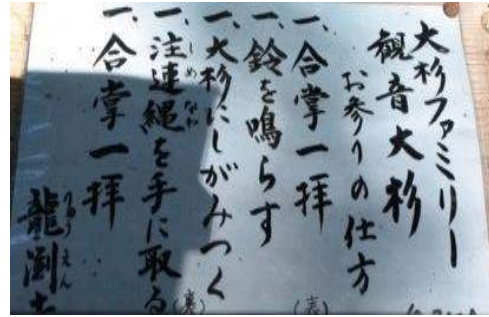 大杉ファミリー
観音大杉
お参りの仕方
一、合掌一拝(表)
一、鈴を鳴らす
一、大杉にしがみつく
一、注連縄を手に取る(裏)
一、合掌一拝